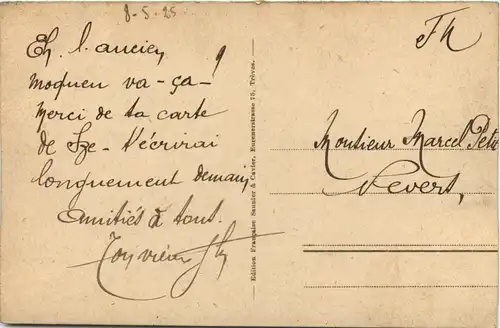 8-5-25
Eh, l'ancien,
moqueu va-ça!
Merci de ta carte
de Sze- t'écrirai
longuement demain,
Amitiés à tous.
Ton vieux
Edition Française Saunier & Cavier, Eurenerstrasse 75, Trèves.
Monsieur Marcel
Nevers,